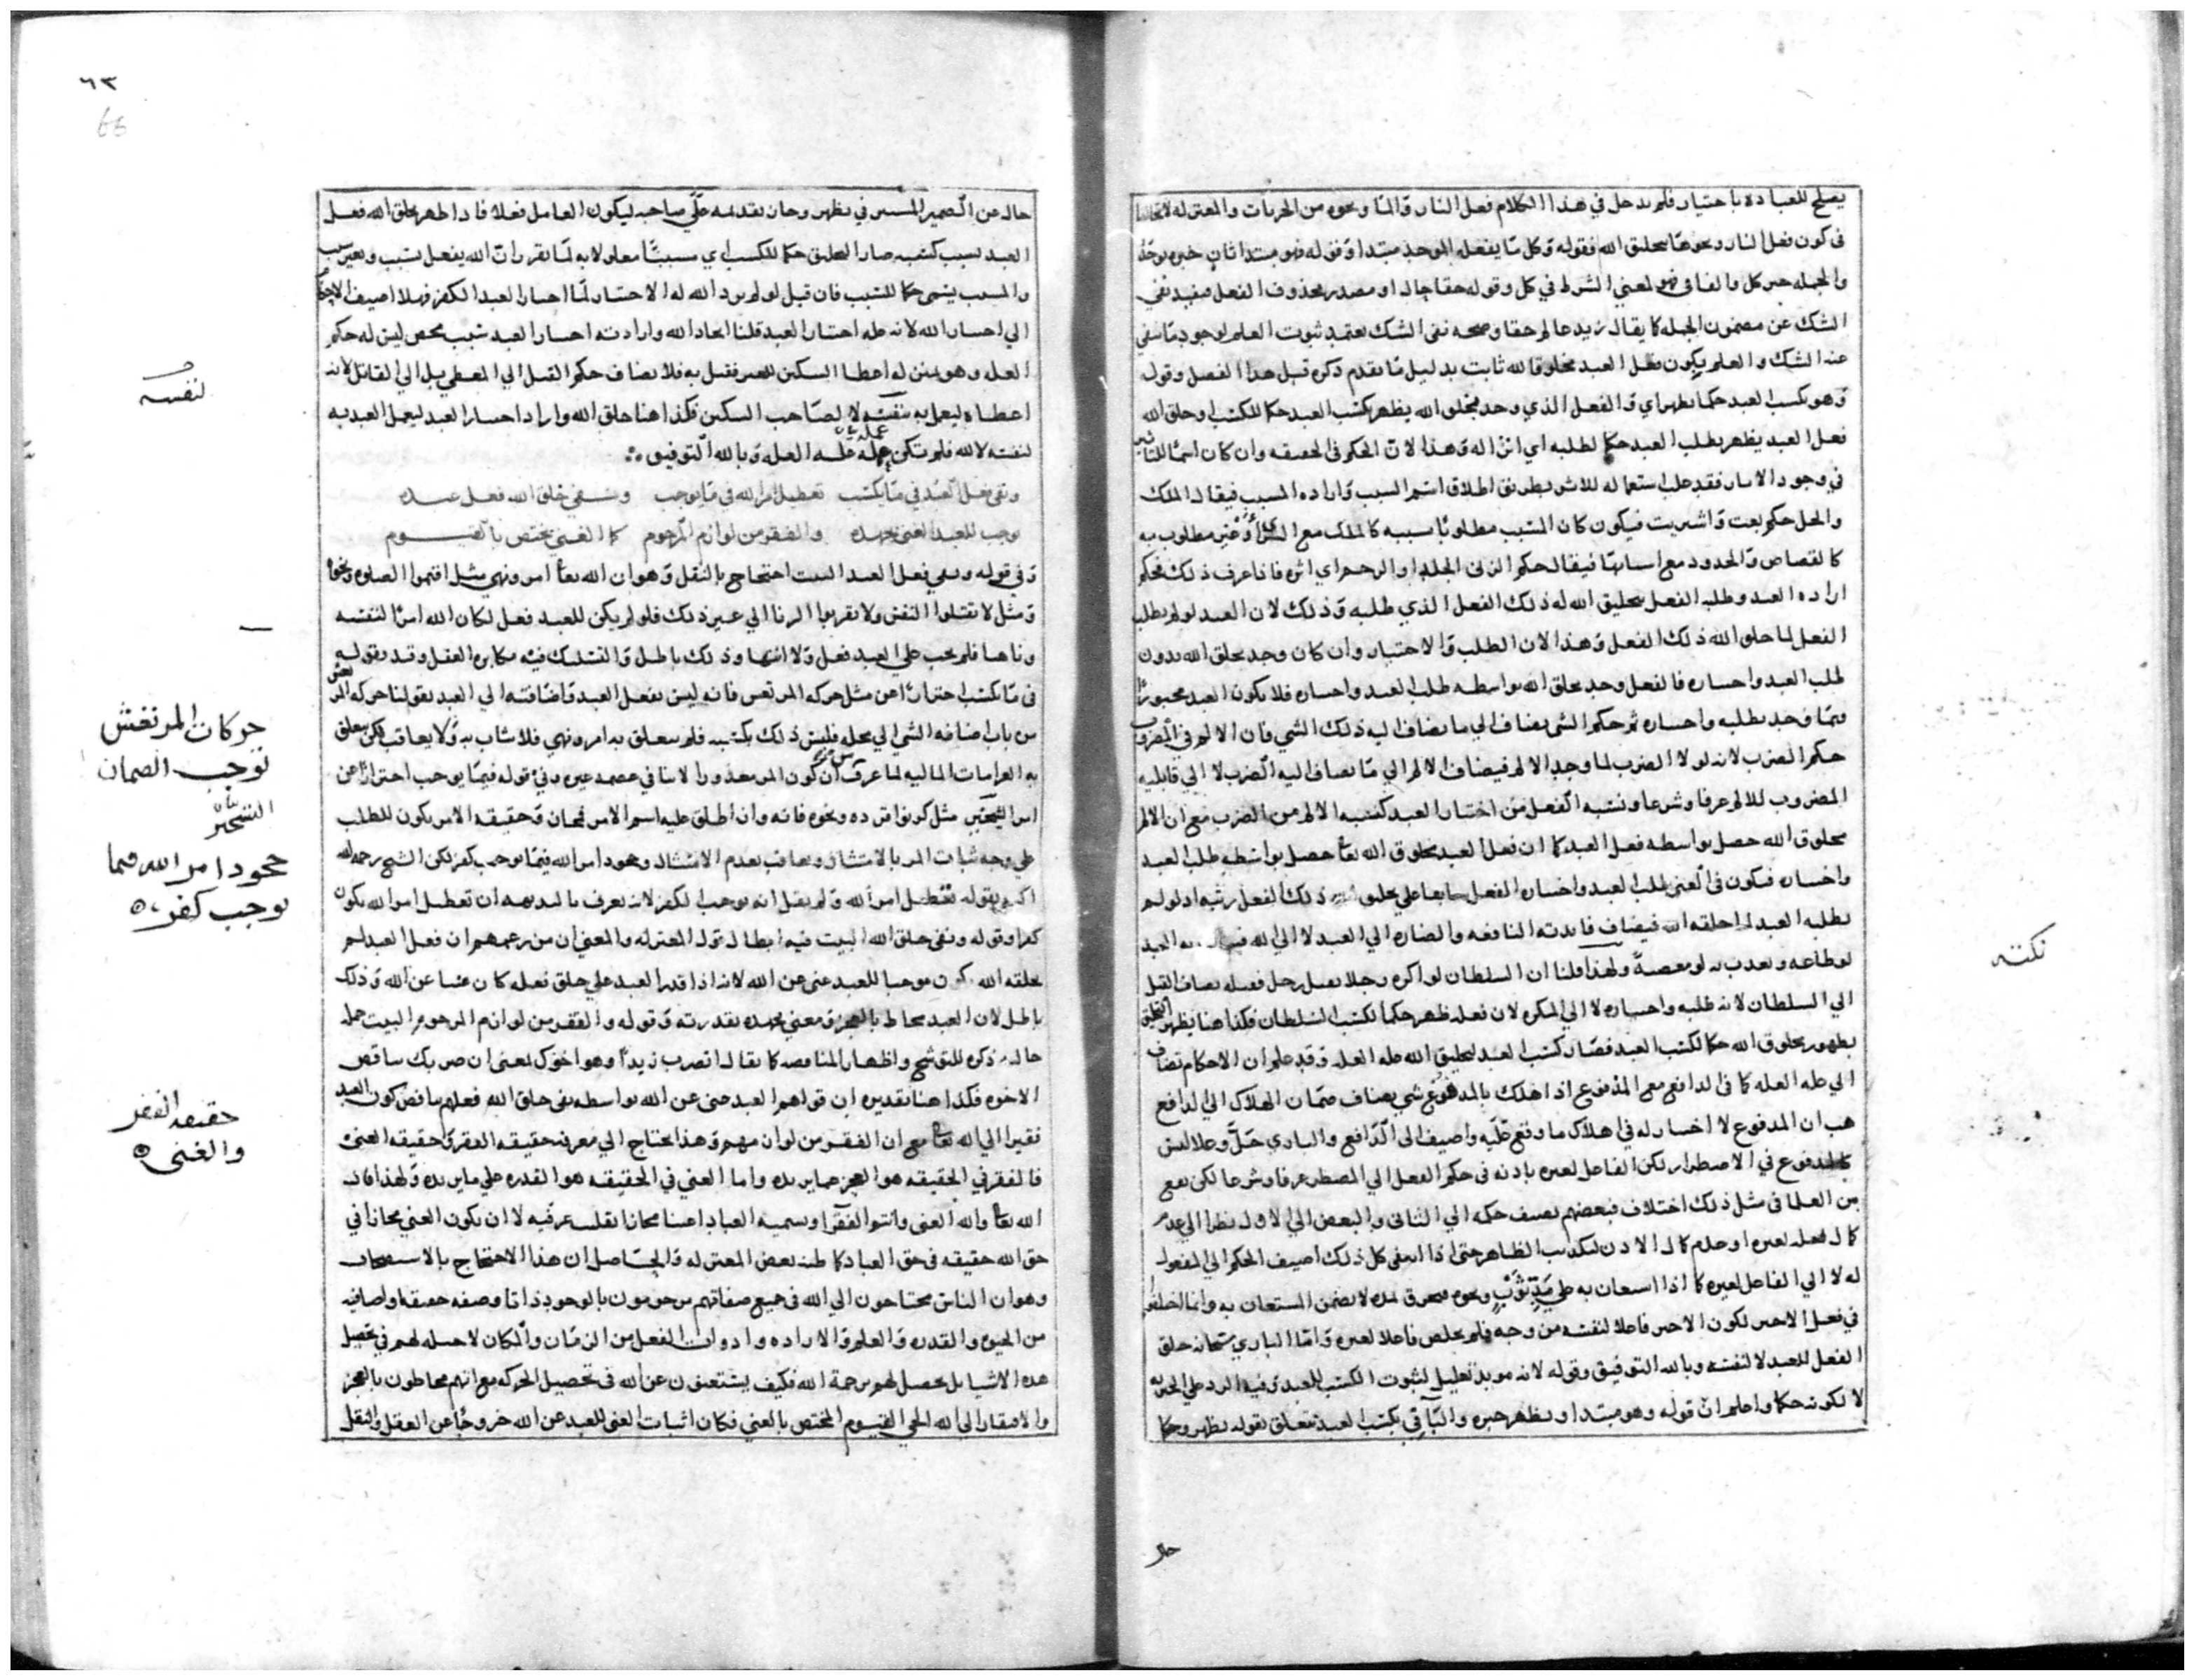 يصلح للعباده باختيار فلم يدخل في هذا الكلام فعل النار والما ونحوه من الجريات والمعتزله لا تخالفنا
في كون فعل النار ونحوها بتخليق الله فقوله وكل ما يفعله الموحد مبتدا وقوله فهو مبتدا ثان خبره يوجد
والجمله خبر كل والفا في فهو لمعني الشرط في كل وقوله حقا حال او مصدر محذوف الفعل فيفيد نفي
الشك عن مضمون الجمله كما يقال زيد عالم حقا وصحه نفي الشك يعتمد ثبوت العلم لوجود ما ينفي
عنه الشك والعلم بكون فعل العبد مخلوقا لله ثابت بدليل ما تقدم ذكره قبل هذا الفصل وقوله
وهو بكسب العبد حكما يظهر اي والفعل الذي وجد بخلق الله يظهر بكسب العبد حكما للكسب او خلق الله
فعل العبد يظهر بطلب العبد حكما لطلبه اي اثرا له وهذا لان الحكم في الحقيقه وان كان اسما للتاثير
في وجود الاثار فقد غلب استعماله للاثر بطريق اطلاق اسم السبب واراده المسبب فيقال الملك
والحل حكم بعت واشتريت فيكون كان المسبب مطلوبا بسببه كالملك مع الشرا وغير مطلوب به
كالقصاص والحدود مع اسبابها فيقال حكم الزني الجلد او الرجم اي اثره فاذا عرف ذلك فحكم
اراده العبد وطلبه الفعل تخليق الله له ذلك الفعل الذي طلبه وذلك لان العبد لو لم يطلب
الفعل لما خلق الله ذلك الفعل وهذا لان الطلب والاختيار وان كان وجد بخلق الله بدون
طلب العبد واختياره فالفعل وجد بخلق الله بواسطه طلب العبد واختياره فلا يكون العبد مجبورا
فيما وجد بطلبه واختياره ثم حكم الشي يضاف الي ما يضاف اليه ذلك الشي فان الالم في المضروب
حكم الضرب لانه لولا الضرب لما وجد الالم فيضاف الالم الي ما يضاف اليه الضرب لا الي قابليه
المضروب للالم عرفا وشرعا ونسبه الفعل من اختيار العبد كنسبه الالم من الضرب مع ان الالم
مخلوق الله حصل بواسطه فعل العبد كما ان فعل العبد مخلوق الله تعا حصل بواسطه طلب العبد
واختياره فيكون في المعني طلب العبد واختياره الفعل سابقا علي خلق ذلك الفعل رتبه اذ لو لم
يطلبه العبد لما خلقه الله فيضاف فايدته النافعه والضاره الي العبد لا الي الله به العبد
لو طاعه ويعذب به لو معصية ولهذا قلنا ان السلطان لو اكره رجلا بقتل رجل ففعله يضاف القتل
الي السلطان لانه طلبه واختياره لا الي المكره لان فعله ظهر حكما لكسب السلطان فكذا هنا يظهر التخليق
بظهور مخلوق الله حكما لكسب العبد فصار كسب العبد لتخليق الله عله العله وقد علم ان الاحكام تضاف
الي عله العله كما في الدافع مع المدفوع اذا هلك بالمدفوع شي يضاف ضمان الهلاك الي الدافع
هب ان المدفوع لا اختيار له في اهلاك ما وقع عليه واضيف الي الدافع والباري جل وعلا ليس
كالمدفوع في الاضطرار لكن الفاعل لغيره باذنه في حكم الفعل الي المضطر عرفا وشرعا لكن يقع
بين العلما في مثل ذلك اختلاف فبعضهم يضيف حكمه الي الثاني والبعض الي الاول نظرا الي عدم
كمال فعله لغيره او عدم كمال الاذن الظاهر حتي اذا انتفي كل ذلك اضيف الحكم الي المفعول
له لا الي الفاعل لغيره كما اذا استعان به علي مد ثوب ونحوه فتخرق لمده لا يضمن المستعان به وانما اختلفوا
في فعل الاجير لكون الاجير فاعلا لنفسه من وجه فلم يخلص فاعلا لغيره واما الباري سبحانه خلق
الفعل للعبد لا لنفسه وبالله التوفيق وقوله لانه مويد تعليل لثبوت الكسب للعبد وفيه الرد علي الجبريه
لا لكونه حكما واعلم ان قوله وهو مبتدا ويظهر خبره والبا في بكسب العبد متعلق بقوله يظهر وحكما
حال
نكته
٦٣
66
حال عن الضمير المستتر في يظهر وجاز تقديمه علي صاحبه ليكون العامل فعلا فاذا ظهر بخلق الله فعل
العبد بسبب كسبه صار التخليق حكما للكسب اي مسببا معلولا به لما تقرر ان الله يفعل بسبب وبغير سبب
والمسبب يسمي حكما للسبب فان قيل لو لم يرد الله له الاختيار لما اختار العبد الكفر فهلا اضيف الاحكام
الي اختيار الله لانه عله اختيار العبد قلنا ايجاد الله وارادته اختيار العبد سبب محض ليس له حكم
العله وهو بمنزله اعطا السكين للغير فقتل به فلا يضاف حكم القتل الي المعطي بل الي القاتل لانه
اعطاه ليعمل به بنفسه لا لصاحب السكين فكذا هنا خلق الله واراد اختيار العبد ليعمل العبد به
لنفسه لا لله فلم تكن عمله عله العله وبالله التوفيق
ونفي فعل العبد في ما يكتسب تعطيل امر الله في ما يوجب ونفي خلق الله فعل عبده
يوجب للعبد الغني بجهده والفقر من لوازم المرحوم كما الغني يختص بالقيوم
وفي قوله ونفي فعل العبد البيت احتجاج بالنقل وهو ان الله تعا امر ونهي مثل اقيموا الصلوه ونحوه
ومثل لا تقتلوا النفس ولا تقربوا الزنا الي غير ذلك فلو لم يكن للعبد فعل لكان الله امرا لنفسه
وناهيا فلم يجب علي العبد فعل ولا انتها وذلك باطل والتشكك فيه مكابره العقل وقيد بقوله
في ما يكتسب احترازا عن مثل حركه المرتعش فانه ليس بفعل العبد واضافته الي العبد بقولنا حركه المرتعش
من باب اضافه الشي الي محله فليس ذلك بكسبه فلم يتعلق به امر ونهي فلا يثاب به ولا يعاقب لكن يتعلق
به الغرامات الماليه لما عرف ان كون المر معذورا لا ينافي عصمه غيره وفي قوله فيما يوجب احترازا عن
امر التسخير مثل كونوا قرده ونحوه فانه وان اطلق عليه اسم الامر فمجاز وحقيقه الامر يكون للطلب
علي وجه يثاب المر بالامتثال ويعاقب بعدم الامتثال وجحود امر الله فيما يوجب كفر لكن الشيخ رحمه الله
بقوله تعطيل امر الله ولم يقل انه يوجب الكفر لانه يعرف بالبديهه ان تعطيل امر الله يكون
كفرا وقوله ونفي خلق الله البيت فيه ابطال قول المعتزله والمعني ان من زعمهم ان فعل العبد لم
يخلقه الله موجبا للعبد غني عن الله لانه اذا قدر العبد علي خلق فعله كان غنيا عن الله وذلك
باطل لان العبد محاط بالعجز ومعني بجهده بقدرته وقوله والفقر من لوازم المرحوم البيت جمله
حاليه ذكره للتوشيح واظهار المناقضه كما يقال اتضرب زيدا وهو اخوك بمعني ان ضربك يناقض
الاخوه فكذا هنا تقديره ان قولهم العبد غني عن الله بواسطه نفي خلق الله فعلهم يناقض كون العبد
فقيرا الي الله تعا مع ان الفقر من لوازمهم وهذا يحتاج الي معرفه حقيقه الفقر وحقيقه الغني
فالفقر في الحقيقه هو العجز عما يريده واما الغني في الحقيقه هو القدره علي ما يريده ولهذا قال
الله تعا والله الغني وانتم الفقرا وتسميه العباد اغنيا مجازا عرفيه لا ان يكون الغني مجازا في
حق الله حقيقه في حق العباد كما ظنه بعض المعتزله والحاصل ان هذا الاحتجاج بالاستصحاب
وهو ان الناس محتاجون الي الله في جميع صفاتهم مرحومون بالوجود ذاتا وصفه حقيقه واضافيه
من الحيوه والقدره والعلم والاراده وادوات الفعل من الزمان والمكان لا حيله لهم في تحصيل
هذه الاشيا بل يحصل لهم برحمه الله فكيف يستغنون عن الله في تحصيل الحركه مع انهم محاطون بالعجز
والافتقار الي الله الحي القيوم المختص بالغني فكان اثبات الغني للعبد عن الله خروجا عن العقل والنقل
لنفسه
حركات المرتعش
توجب الضمان
التسخير
جحود امر الله فيما
يوجب كفر
حقيقه الفقر
والغني